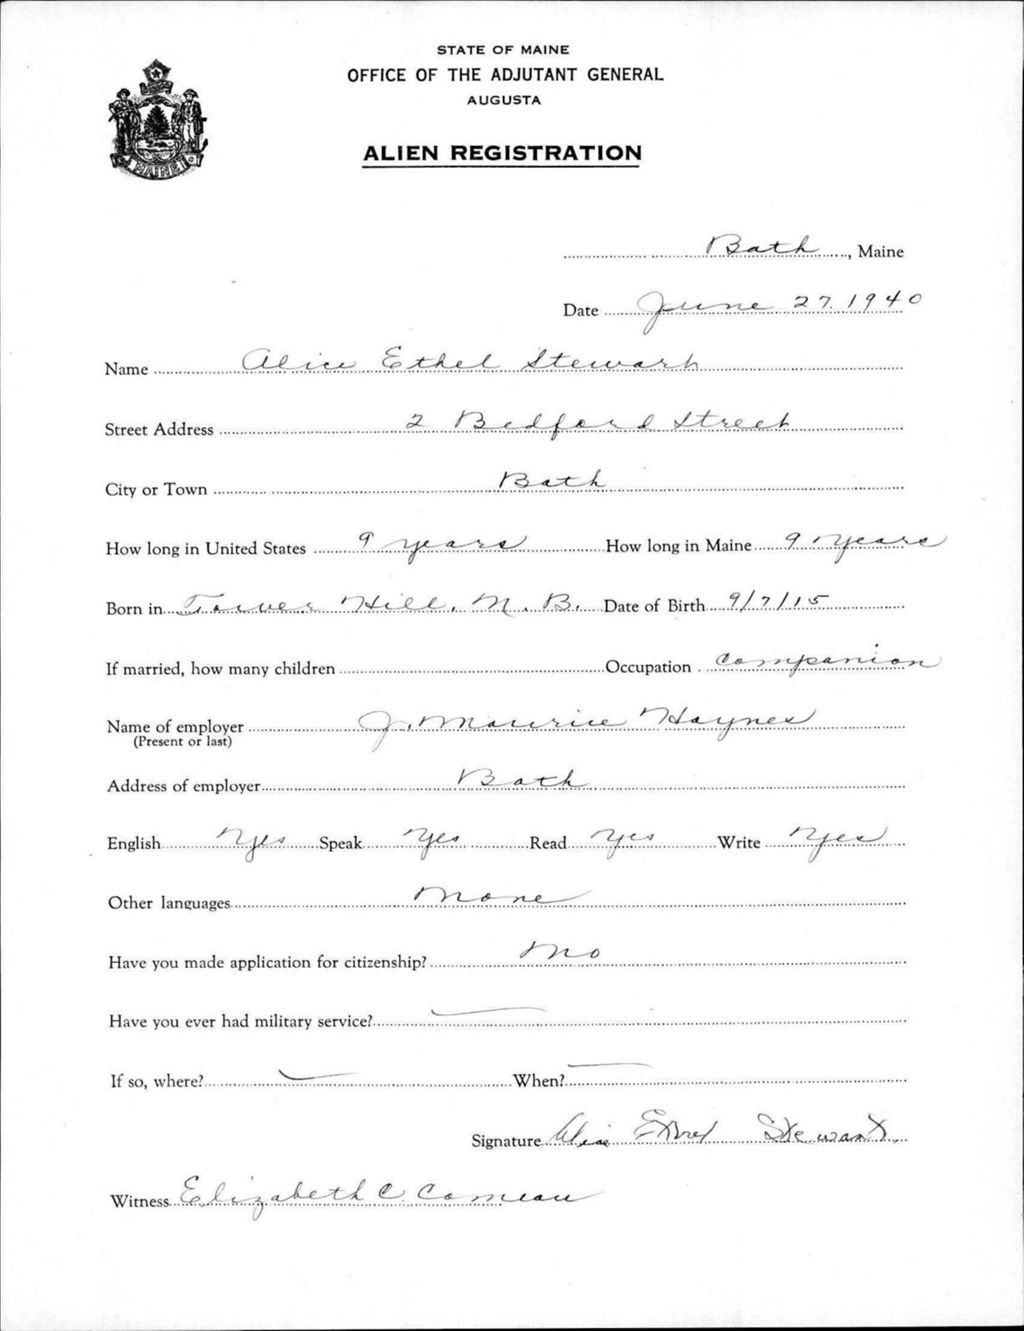 STATE OF MAINE
OFFICE OF THE ADJUTANT GENERAL
AUGUSTA
ALIEN REGISTRATION
MAINE
Bath, Maine
Date June 27. 1940
Name Alice Ethel Stewart
Street Address 2 Bedford Street
City or Town Bath
How long in United States 9 years How long in Maine 9 years
Born in Tower Hill, N. B. Date of Birth 9/7/15
If married, how many children Occupation Companion
Name of employer J. Maurice Haynes
(Present or last)
Address of employer Bath
English Yes Speak Yes Read Yes Write Yes
Other languages None
Have you made application for citizenship? No
Have you ever had military service? —
If so, where? — When? —
Signature Alice Ethel Stewart
Witness Elizabeth C Comeau